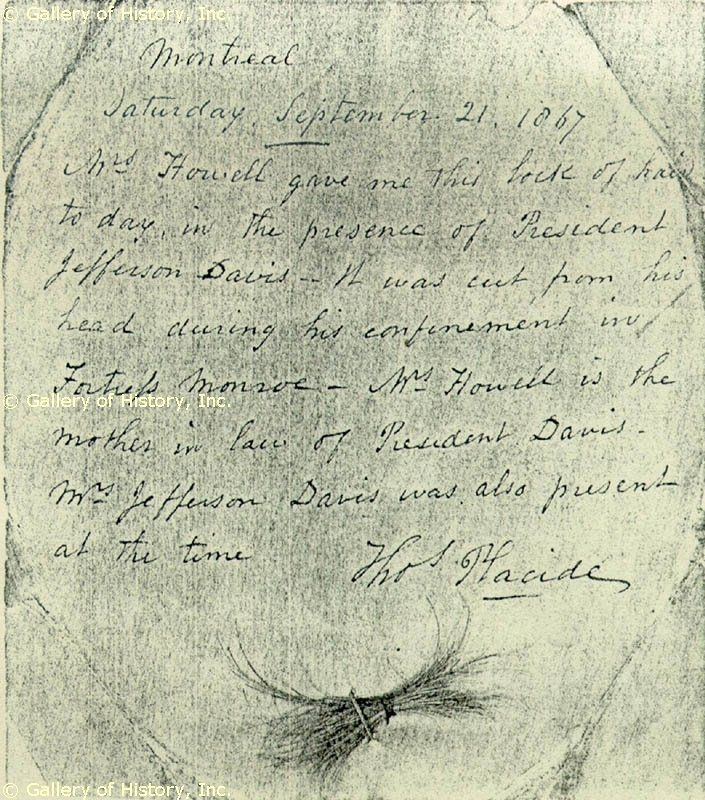 © Gallery of History, Inc.
Montreal
Saturday, September 21, 1867
Mrs Howell gave me this lock of hair
to day, in the presence of President
Jefferson Davis – It was cut from his
head during his confinement in
Fortress Monroe – Mrs Howell is the
© Gallery of History, Inc.
mother in law of President Davis –
Mrs Jefferson Davis was also present
at the time
Thos Placide
© Gallery of History, Inc.